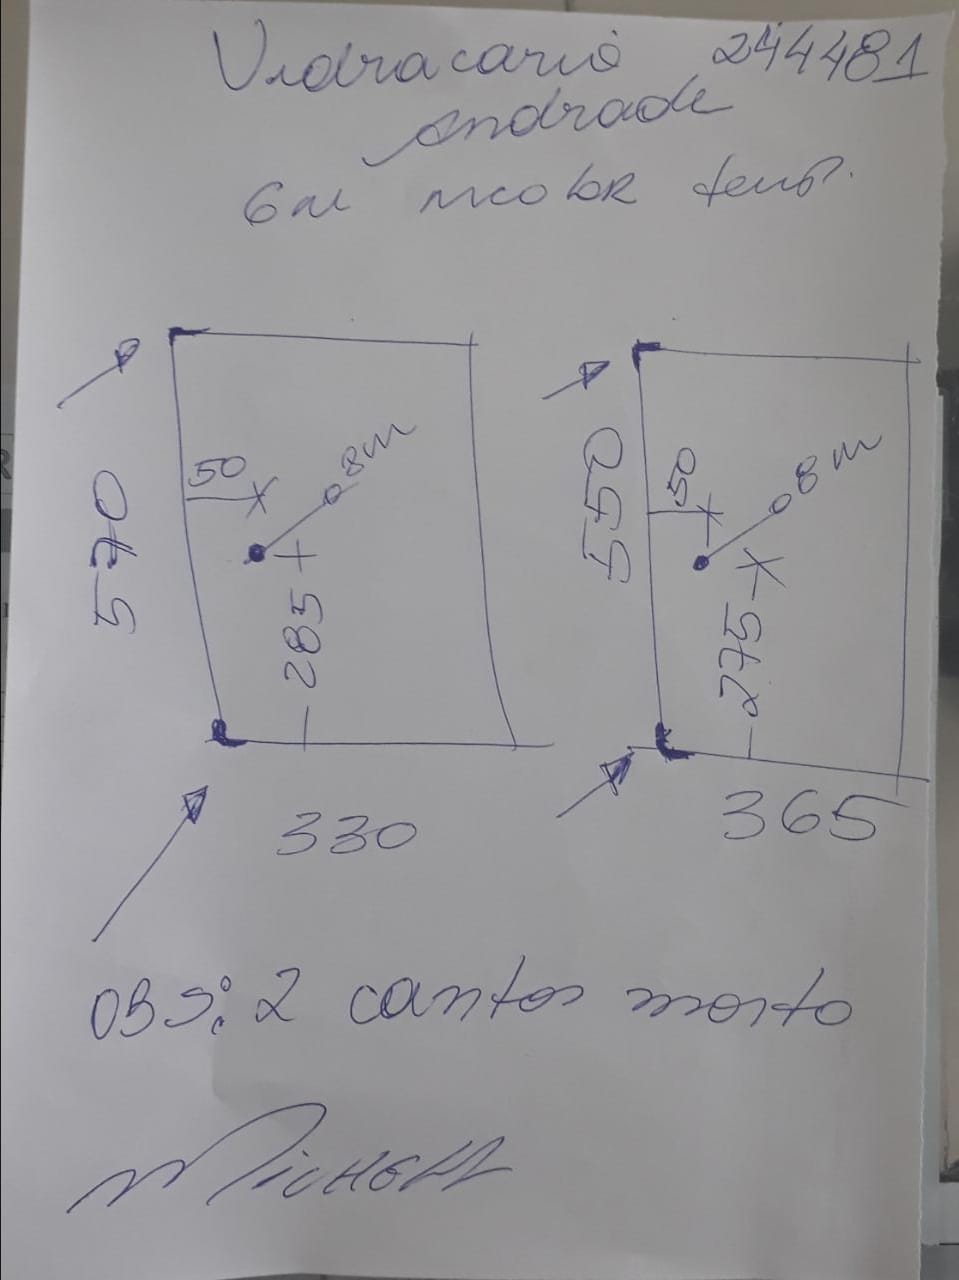 Vidracario 244481
Andrade
6m incolor temp.
50
8m
570
285
330
50
8m
550
275
365
OBS: 2 cantos morto
Michell